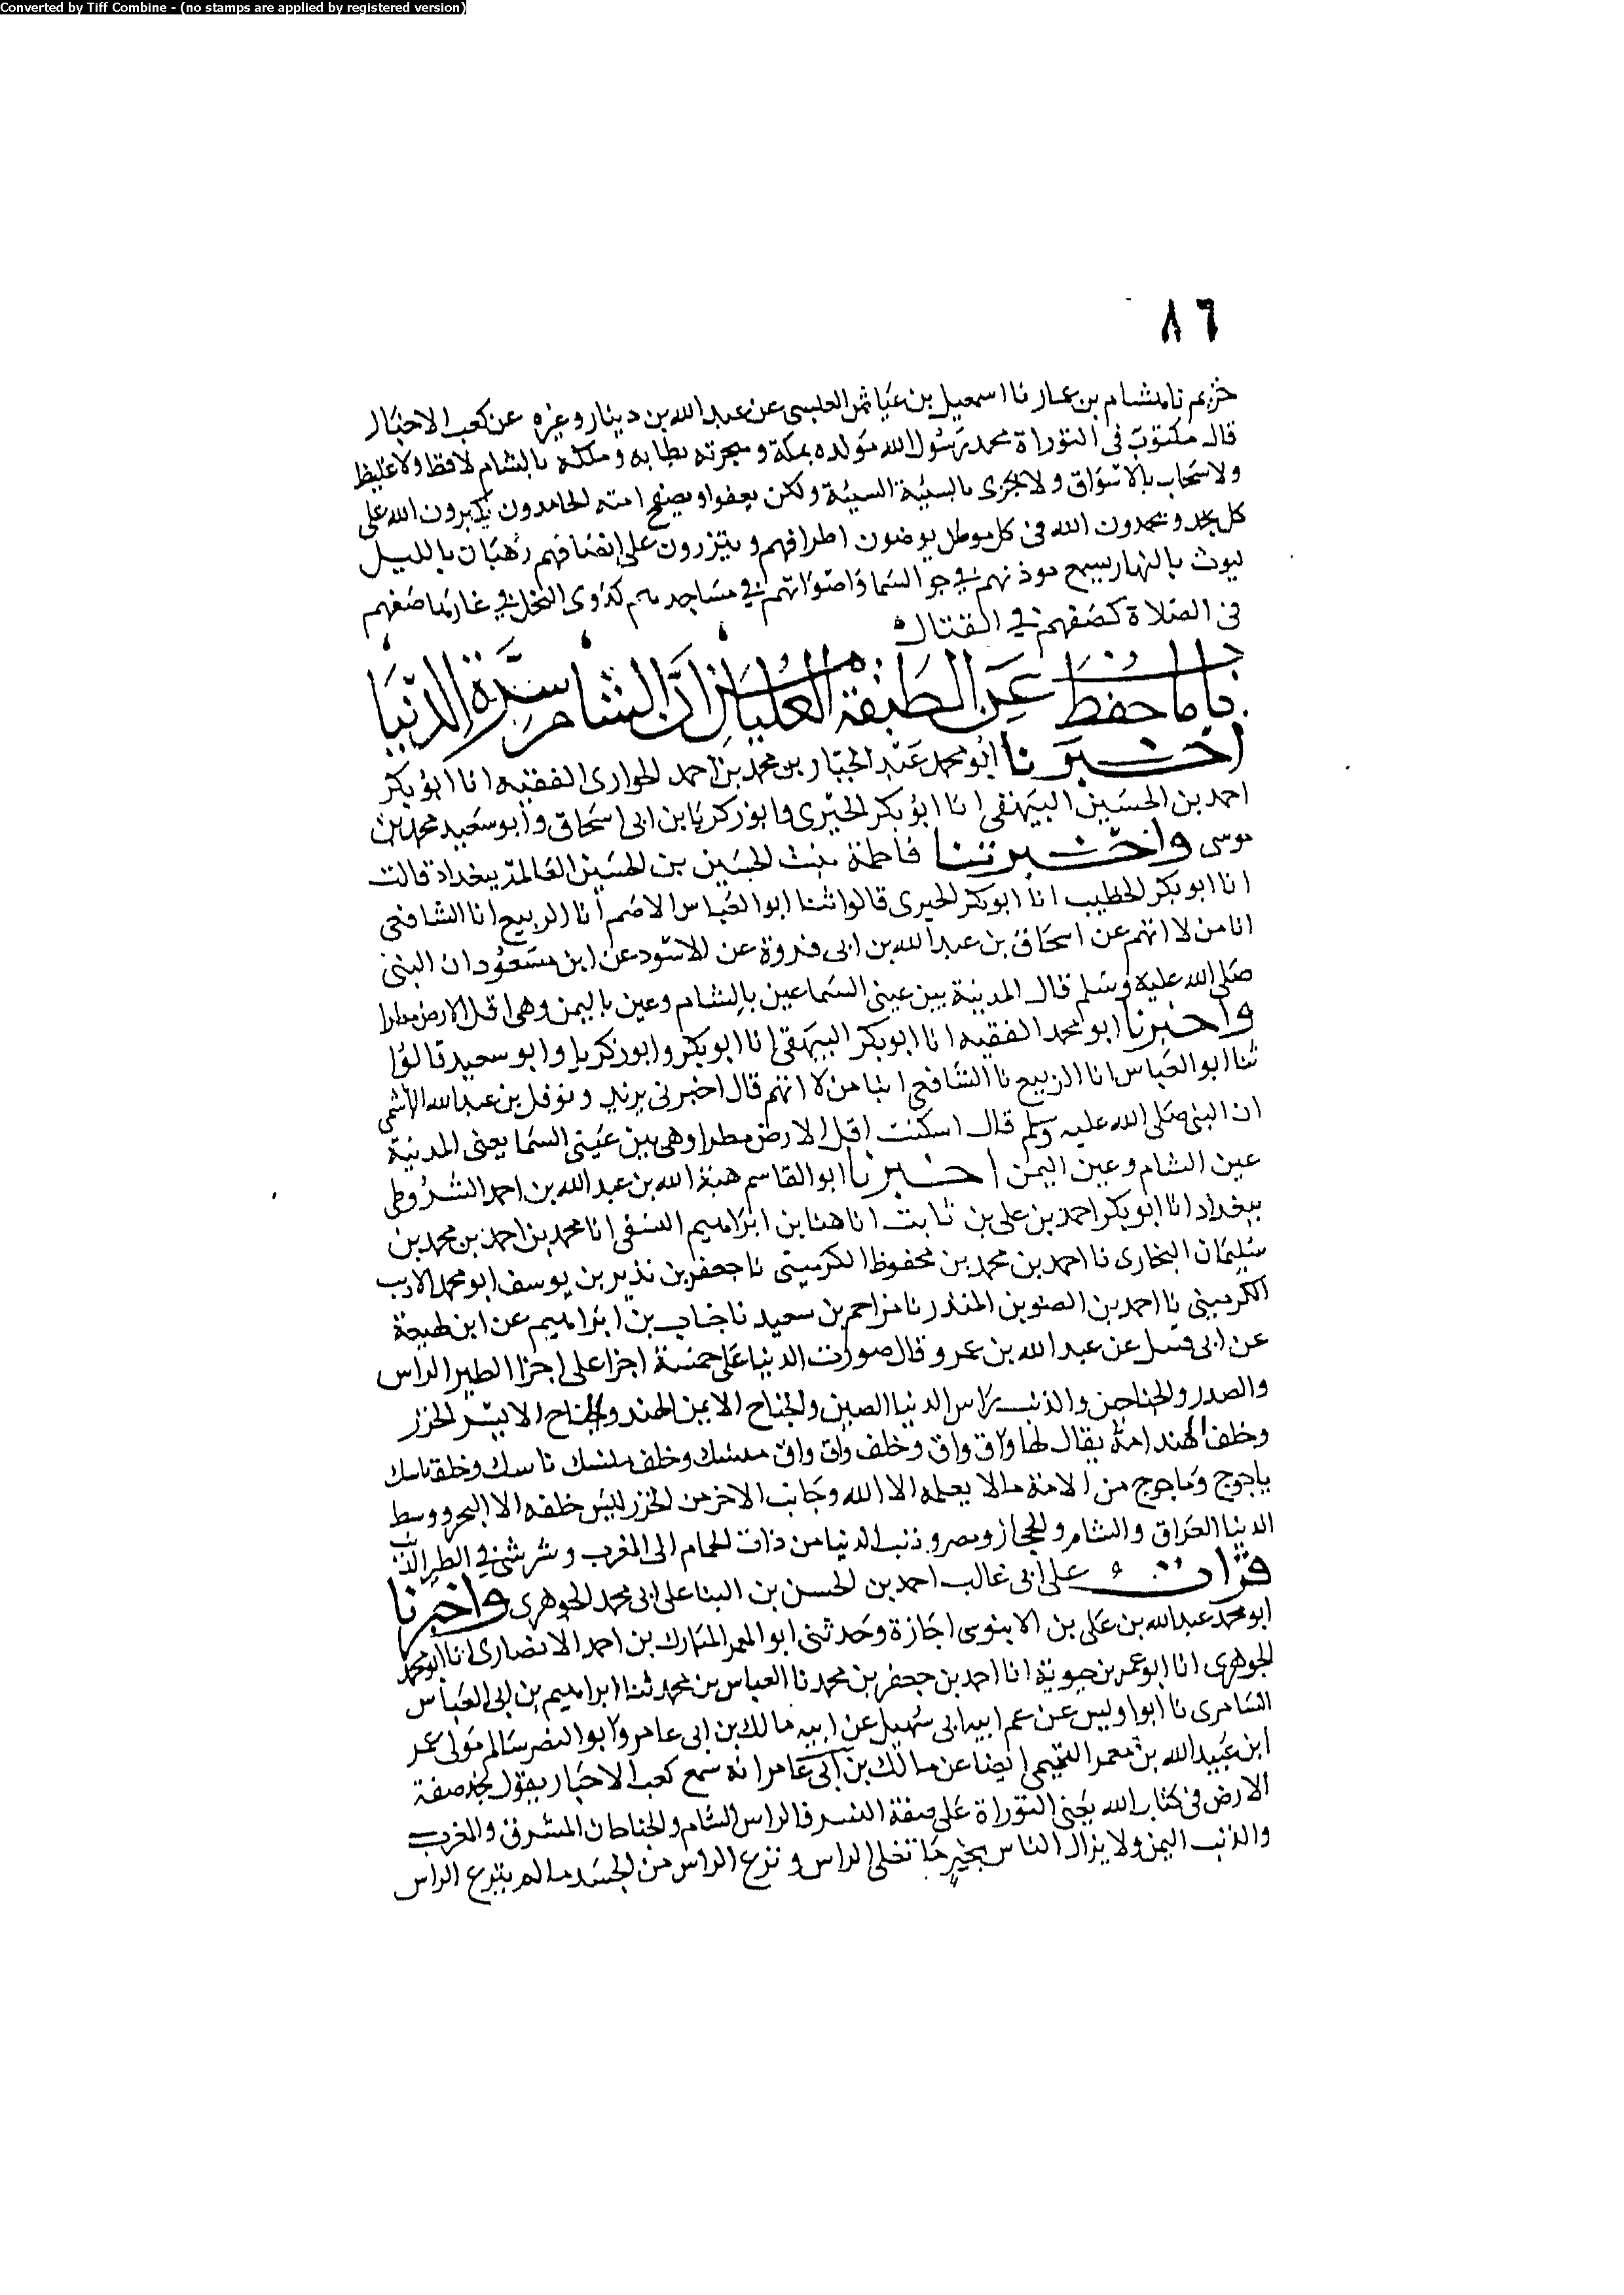 Converted by Tiff Combine - (no stamps are applied by registered version)
٨٦
خريم نا هشام بن عمار نا اسمعيل بن عياش العبسى عن عبد الله بن دينار وغيره عن كعب الاحبار
قال مكتوب فى التوراة محمد رسول الله مولده بمكة وهجرته بطابه وملكه بالشام لا فظ ولا غليظ
ولا سخاب بالاسواق ولا يجزى بالسيئة السيئة ولكن يعفوا ويصفح امته الحامدون يكبرون الله على
كل نجد ويحمدون الله فى كل موطن يوضون اطرافهم ويتزرون على انصافهم رهبان بالليل
ليوث بالنهار يسمع موذنهم في جو السما واصواتهم في مساجدهم كدوى النحل في غارها صفهم
فى الصلاة كصفهم في القتال
باب ما حفظ عن الطبقة العليا ان الشام سرة الدنيا
اخبرنا ابو محمد عبد الجبار بن محمد بن احمد الحوارى الفقيه انا ابو بكر
احمد بن الحسين البيهقى انا ابو بكر الحيرى وابو زكريا بن ابى اسحاق وابو سعيد محمد بن
موسى واخبرتنا فاطمة بنت الحسين بن الحسين العالمة ببغداد قالت
انا ابو بكر الخطيب انا ابو بكر الحيرى قالوا ثنا ابو العباس الاصم انا الربيع انا الشافعى
انا من لا اتهم عن اسحاق بن عبد الله بن ابى فروة عن الاسود عن ابن مسعود ان النبى
صلى الله عليه وسلم قال المدينة بين عينى السما عين بالشام وعين باليمن وهى اقل الارض مطرا
واخبرنا ابو محمد الفقيه انا ابو بكر البيهقى انا ابو بكر وابو زكريا وابو سعيد قالوا
ثنا ابو العباس انا الربيع نا الشافعى انبا من لا اتهم قال اخبرنى يزيد ونوفل بن عبد الله الهاشمى
ان النبى صلى الله عليه وسلم قال اسكنت اقل الارض مطرا وهى بين عينى السما يعنى المدينة
عين الشام وعين اليمن اخبرنا ابو القاسم هبة الله بن عبد الله بن احمد الشروطى
ببغداد انا ابو بكر احمد بن على بن ثابت انا هنا بن ابراهيم النسفى انا محمد بن احمد بن محمد بن
سليمان البخارى نا احمد بن محمد بن محفوظ الكرمينى نا جعفر بن نذير بن يوسف ابو محمد الاديب
الكرمينى نا احمد بن المنذر نا مزاحم بن سعيد نا جناب بن ابراهيم عن ابن لهيعة
عن ابى قبيل عن عبد الله بن عمرو قال صورت الدنيا على خمسة اجزا على اجزا الطير الراس
والصدر والجناحين والذنب راس الدنيا الصين والجناح الايمن الهند والجناح الايسر الخزر
وخلف الهند امة يقال لها واق واق وخلف واق واق منسك وخلف منسك ناسك وخلف ناسك
ياجوج وماجوج من الامة ما لا يعلمه الا الله وجانب الاخر من الخزر ليس خلفه الا البحر ووسط
الدنيا العراق والشام والحجاز ومصر وذنب الدنيا من ذات الحمام الى المغرب وشر شئ في الطير الذنب
قرات على ابى غالب احمد بن الحسن بن البنا على ابى محمد الجوهرى واخبرنا
ابو محمد عبد الله بن على بن الابنوسى اجازة وحدثنى ابو المعمر المبارك بن احمد الانصارى انا ابو محمد
الجوهرى انا ابو عمر بن حيوية انا احمد بن جعفر بن محمد نا العباس بن محمد ثنا ابراهيم بن ابى العباس
السامرى نا ابو اويس عن عم ابيه ابى سهيل عن ابيه مالك بن ابى عامر وابو النضر سالم مولى عمر
ابن عبيد الله بن معمر التيمى ايضا عن مالك بن ابى عامر انه سمع كعب الاحبار يقول نجد صفة
الارض فى كتاب الله يعنى التوراة على صفة النسر فالراس الشام والجناحان المشرق والمغرب
والذنب اليمن ولا يزال الناس بخير ما بقى الراس ونزع الراس من الجسد ما لم ينزع الراس